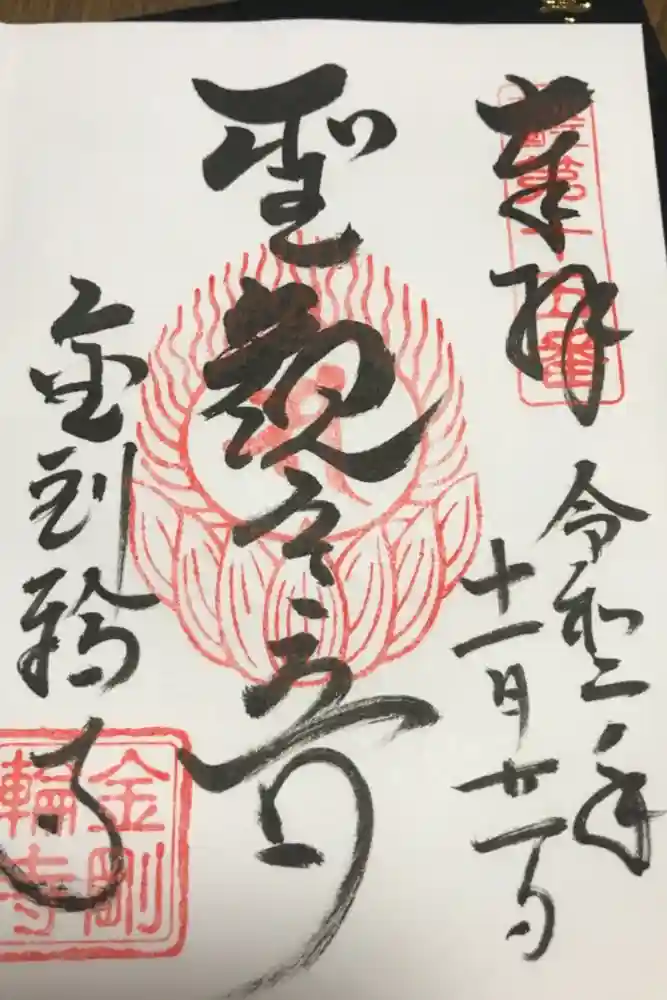 奉拝
第十五番
令和二年
十一月廿一日
聖観音
金剛輪寺
金剛
輪寺